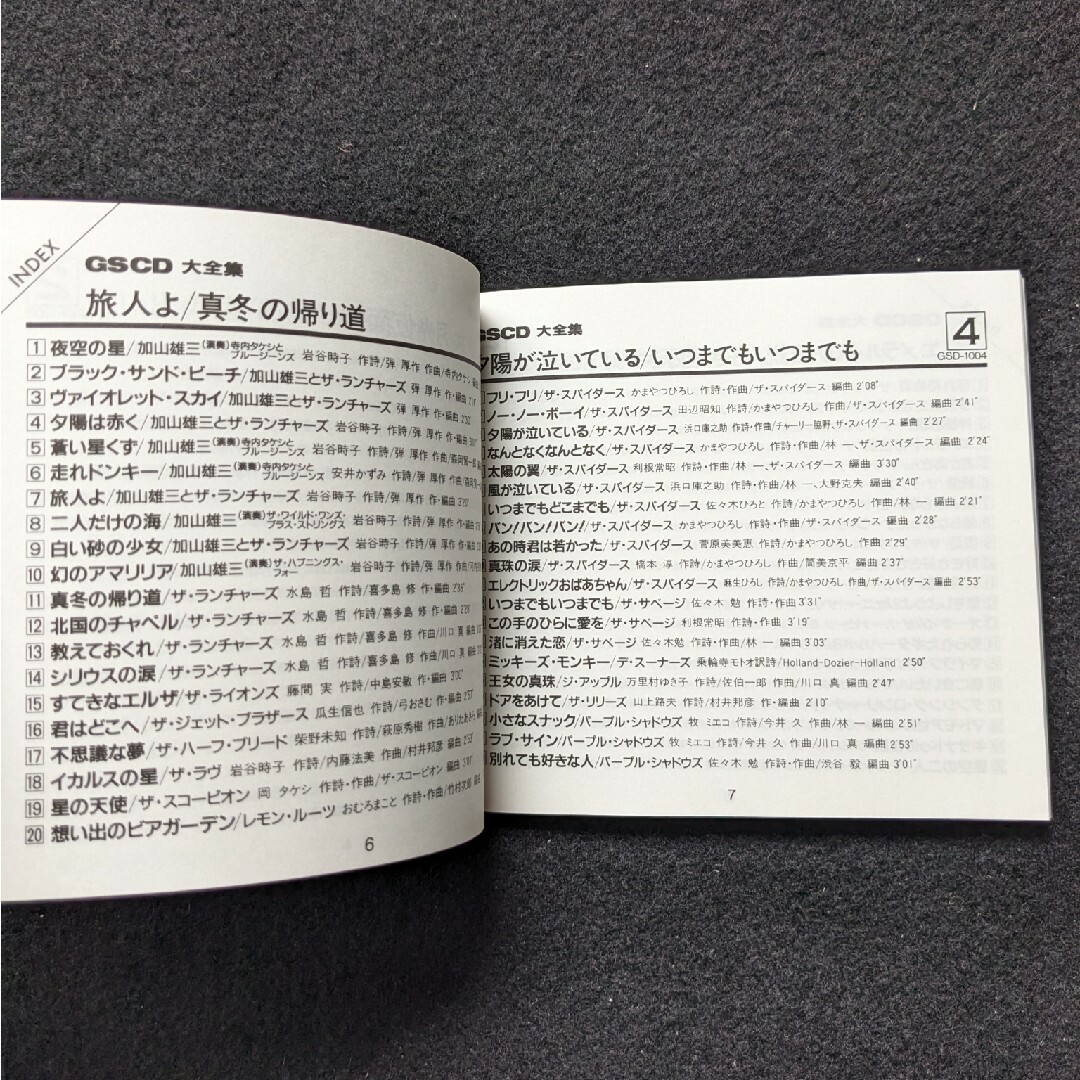 INDEX
GSCD 大全集
旅人よ/真冬の帰り道
1 夜空の星/加山雄三(演奏)寺内タケシとブルージーンズ 岩谷時子 作詩/弾 厚作 作曲/寺内タケシ
2 ブラック・サンド・ビーチ/加山雄三とザ・ランチャーズ 弾 厚作 作・編曲
3 ヴァイオレット・スカイ/加山雄三とザ・ランチャーズ 弾 厚作 作・編曲
4 夕陽は赤く/加山雄三とザ・ランチャーズ 岩谷時子 作詩/弾 厚作 作・編曲
5 蒼い星くず/加山雄三(演奏)寺内タケシとブルージーンズ 岩谷時子 作詩/弾 厚作 作曲
6 走れドンキー/加山雄三(演奏)寺内タケシとブルージーンズ 安井かずみ 作詩/弾 厚作 作曲
7 旅人よ/加山雄三とザ・ランチャーズ 岩谷時子 作詩/弾 厚作 作・編曲
8 二人だけの海/加山雄三(演奏)ザ・ワイルド・ワンズ・プラス・ストリングス 岩谷時子 作詩/弾 厚作 作・編曲
9 白い砂の少女/加山雄三とザ・ランチャーズ 岩谷時子 作詩/弾 厚作 作・編曲
10 幻のアマリリア/加山雄三(演奏)ザ・ハプニングス・フォー 岩谷時子 作詩/弾 厚作 作曲
11 真冬の帰り道/ザ・ランチャーズ 水島 哲 作詩/喜多島 修 作・編曲
12 北国のチャペル/ザ・ランチャーズ 水島 哲 作詩/喜多島 修 作・編曲
13 教えておくれ/ザ・ランチャーズ 水島 哲 作詩/喜多島 修 作曲/川口 真 編曲
14 シリウスの涙/ザ・ランチャーズ 水島 哲 作詩/喜多島 修 作曲/川口 真 編曲
15 すてきなエルザ/ザ・ライオンズ 藤間 実 作詩/中島安敏 作・編曲 3'00"
16 君はどこへ/ザ・ジェット・ブラザース 瓜生信也 作詩/弓おさむ 作・編曲
17 不思議な夢/ザ・ハーフ・ブリード 柴野未知 作詩/萩原秀樹 作曲
18 イカルスの星/ザ・ラヴ 岩谷時子 作詩/内藤法美 作曲/村井邦彦 編曲
19 星の天使/ザ・スコーピオン 岡 タケシ 作詩・作曲/ザ・スコーピオン 編曲
20 想い出のビアガーデン/レモン・ルーツ おむろまこと 作詩・作曲
6
GSCD 大全集
4
GSD-1004
夕陽が泣いている/いつまでもいつまでも
フリ・フリ/ザ・スパイダース かまやつひろし 作詩・作曲/ザ・スパイダース 編曲 2'08"
ノー・ノー・ボーイ/ザ・スパイダース 田辺昭知 作詩/かまやつひろし 作曲/ザ・スパイダース 編曲 2'41"
夕陽が泣いている/ザ・スパイダース 浜口庫之助 作詩・作曲/チャーリー脇野、ザ・スパイダース 編曲 2'27"
なんとなくなんとなく/ザ・スパイダース かまやつひろし 作詩・作曲/林 一、ザ・スパイダース 編曲 2'24"
太陽の翼/ザ・スパイダース 利根常昭 作詩・作曲/林 一、ザ・スパイダース 編曲 3'30"
風が泣いている/ザ・スパイダース 浜口庫之助 作詩・作曲/林 一、大野克夫 編曲 2'40"
いつまでもどこまでも/ザ・スパイダース 佐々木ひろと 作詩/かまやつひろし 作曲/林 一 編曲 2'21"
バン!バン!バン!/ザ・スパイダース かまやつひろし 作詩・作曲/ザ・スパイダース 編曲 2'28"
あの時君は若かった/ザ・スパイダース 菅原芙美恵 作詩/かまやつひろし 作・編曲 2'29"
真珠の涙/ザ・スパイダース 橋本 淳 作詩/かまやつひろし 作曲/筒美京平 編曲 2'37"
エレクトリックおばあちゃん/ザ・スパイダース 麻生ひろし 作詩/かまやつひろし 作曲/ザ・スパイダース 編曲 2'53"
いつまでもいつまでも/ザ・サベージ 佐々木 勉 作詩・作曲 3'31"
この手のひらに愛を/ザ・サベージ 利根常昭 作詩・作曲 3'19"
渚に消えた恋/ザ・サベージ 佐々木勉 作詩・作曲/林 一 編曲 3'03"
ミッキーズ・モンキー/デ・スーナーズ 乗輪寺モト訳詩/Holland-Dozier-Holland 2'50"
王女の真珠/ジ・アップル 万里村ゆき子 作詩/佐伯一郎 作曲/川口 真 編曲 2'47"
ドアをあけて/ザ・リリーズ 山上路夫 作詩/村井邦彦 作・編曲 2'10"
小さなスナック/パープル・シャドウズ 牧 ミエコ 作詩/今井 久 作曲/林 一 編曲 2'51"
ラブ・サイン/パープル・シャドウズ 牧 ミエコ 作詩/今井 久 作曲/川口 真 編曲 2'53"
別れても好きな人/パープル・シャドウズ 佐々木 勉 作詩・作曲/渋谷 毅 編曲 3'01"
7